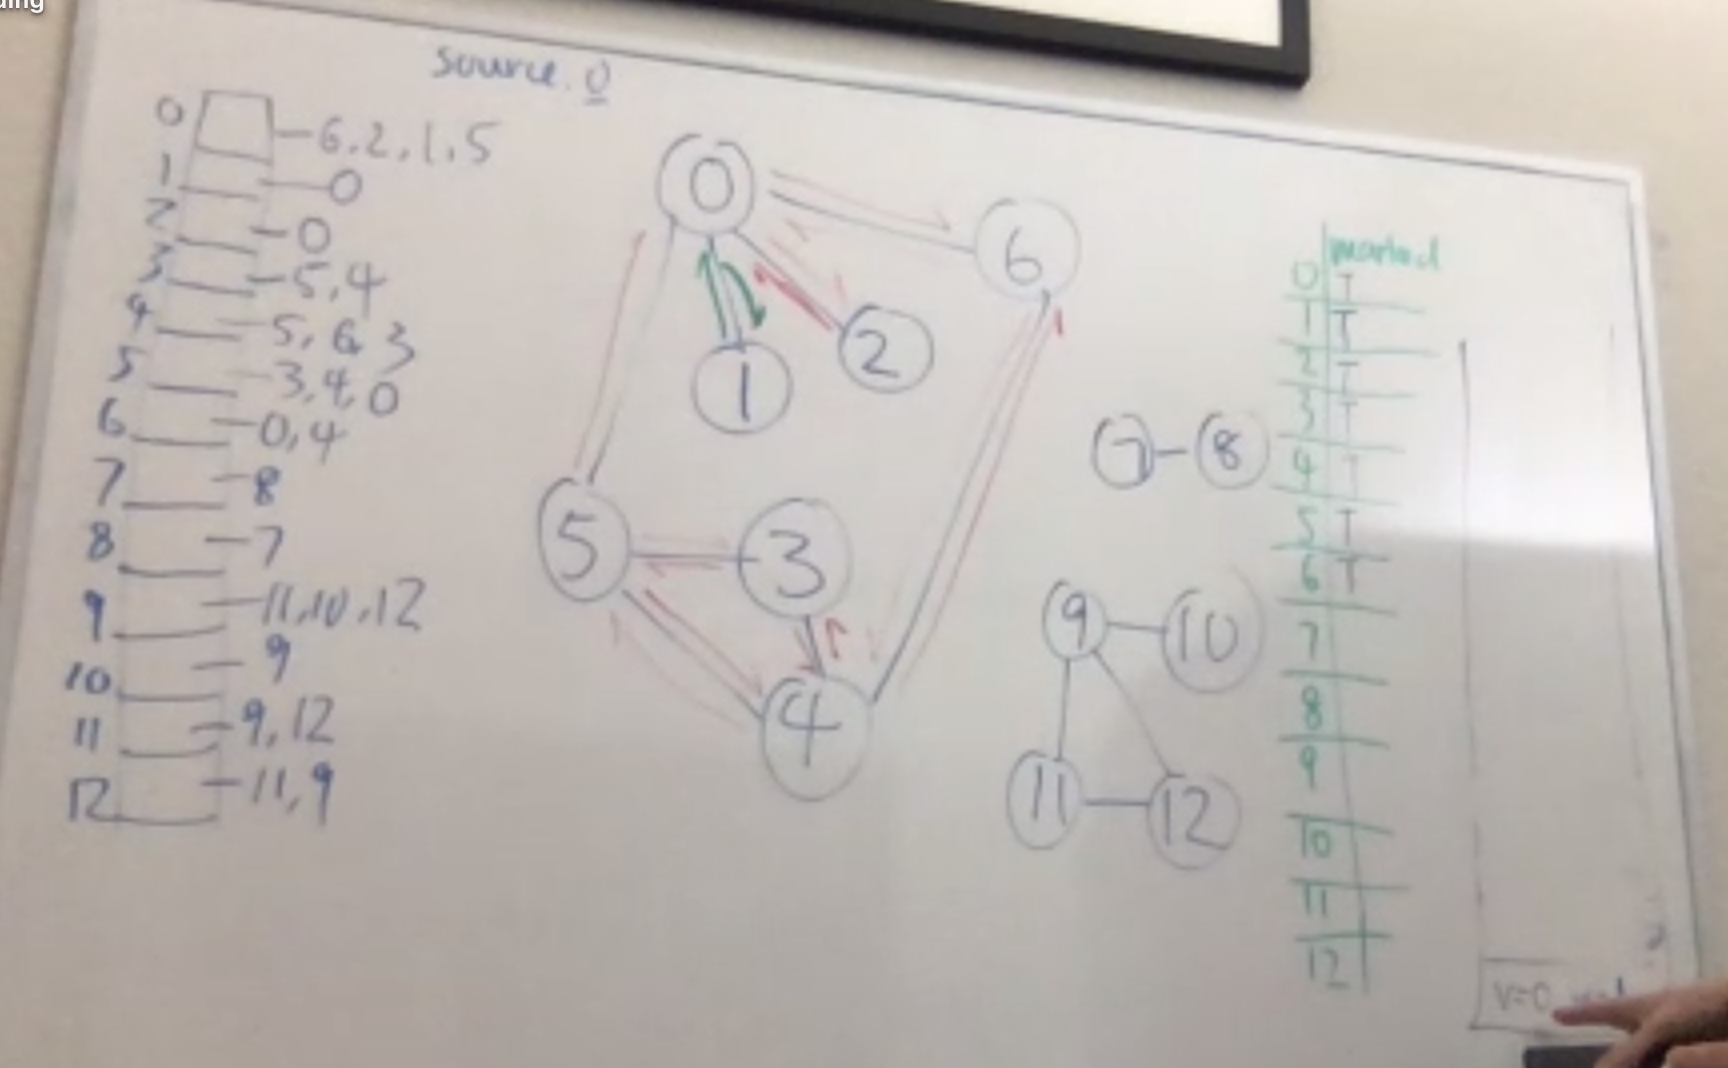 Source. 0
0 - 6, 2, 1, 5
1 - 0
2 - 0
3 - 5, 4
4 - 5, 6, 3
5 - 3, 4, 0
6 - 0, 4
7 - 8
8 - 7
9 - 11, 10, 12
10 - 9
11 - 9, 12
12 - 11, 9
0
6
1
2
5
3
4
7 - 8
9
10
11
12
marked
0 T
1 T
2 T
3 T
4 T
5 T
6 T
7
8
9
10
11
12
v=0